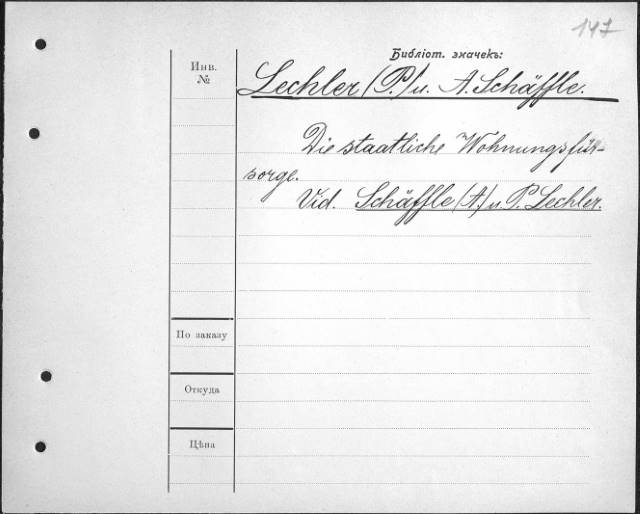 147
Библіот. значекъ:
Инв.
№
Lechler (P.) u. A. Schäffle.
Die staatliche Wohnungsfür-
sorge.
Vid. Schäffle (A.) u. P. Lechler.
По заказу
Откуда
Цѣна